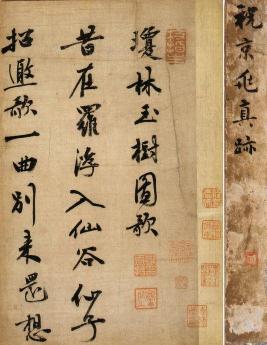 祝京兆真跡
瓊林玉樹圖歌
昔在羅浮入仙谷仙子
招邀歌一曲別来還想